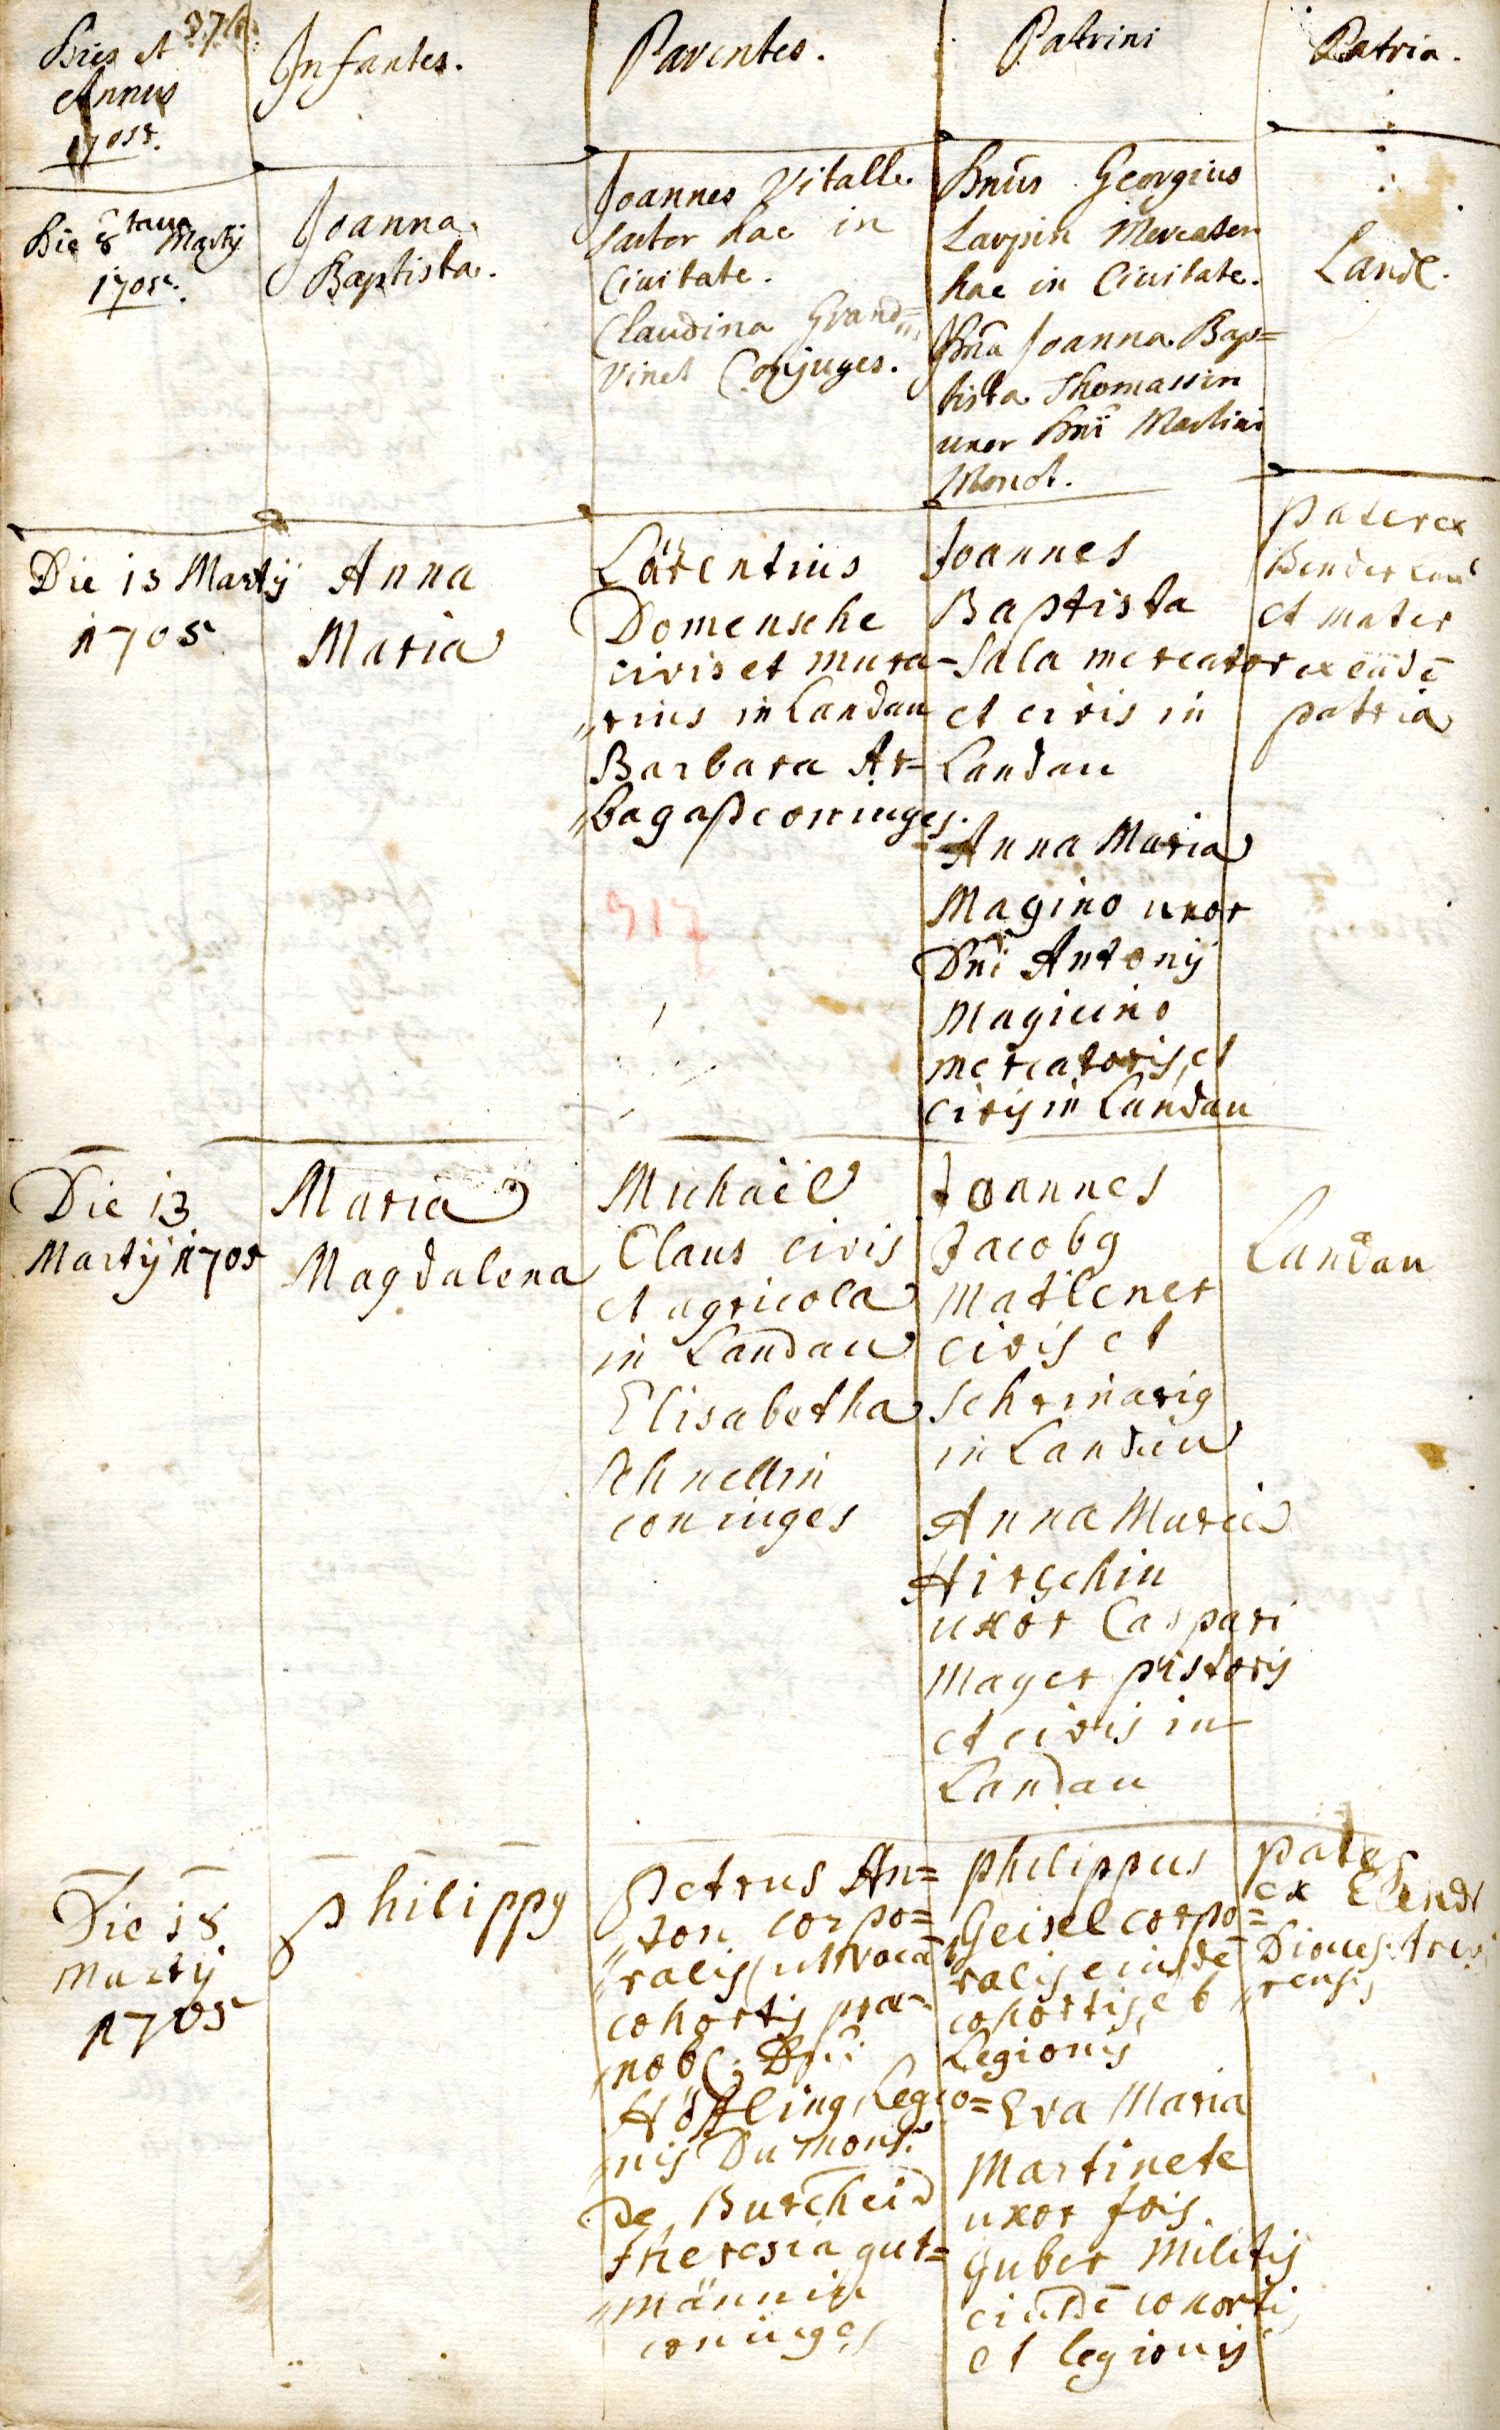 376.
Dies et
Annus
1705.
Infantes.
Parentes.
Patrini
Patria.
Die 8 tava Martij
1705.
Joanna
Baptista.
Joannes Vitalle
sartor hac in
Civitate.
Claudina Grand=
vinet Conjuges.
Dnūs Georgius
Larpin Mercator
hac in Civitate.
Dna Joanna Bap=
tista Thomassin
uxor Dni Martini
Monot.
Land.
Die 13 Martij
1705
Anna
Maria
Laurentius
Domensche
civis et mura=
"rius in Landau
Barbara Ar=
"bagaß coniuges.
917
Joannes
Baptista
Sala mercator
et civis in
Landau
Anna Maria
Magino uxor
Dni Antonij
Magicino
mercatoris, et
civis in Landau
Pater ex
et mater
ex eadē
patria
Die 13
Martij 1705
Maria
Magdalena
Michäel
Claus civis
et agricola
in Landau
Elisabetha
Schnellin
coniuges
Joannes
Jacobg
Matlener
civis et
schrinarig
in Landau
Anna Maria
Hirschin
uxor Caspari
Mayer pistoris
et civis in
Landau
Landau
Die 18
Martij
1705
Philippg
Petrus An=
"ton corpo=
"ralis (ut voca
cohortis præ=
nob: Dni
Höfling Legio=
"nis Du Mons:
De Burcheid
Theresia gut=
"männin
coniuges
Philippus
Geisel corpo=
"ralis eiusdē
cohortis, et
Legionis
Eva Maria
Martinete
uxor Jois
Huber Militis
eiusdē cohortis
et legionis
pater
ex
Dioces: trevi
"rensis